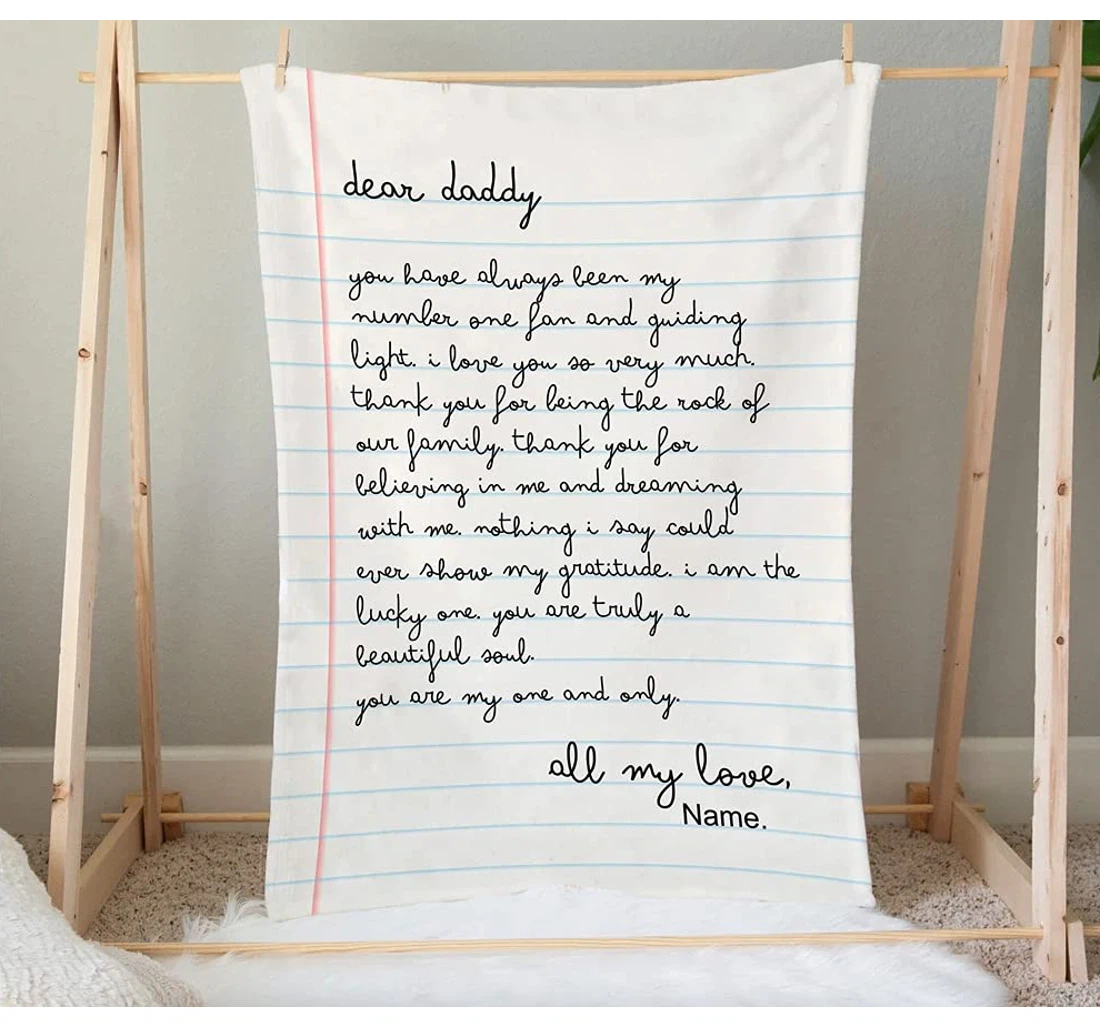 dear daddy
you have always been my
number one fan and guiding
light. i love you so very much.
thank you for being the rock of
our family. thank you for
believing in me and dreaming
with me. nothing i say could
ever show my gratitude. i am the
lucky one. you are truly a
beautiful soul.
you are my one and only.
all my love,
Name.